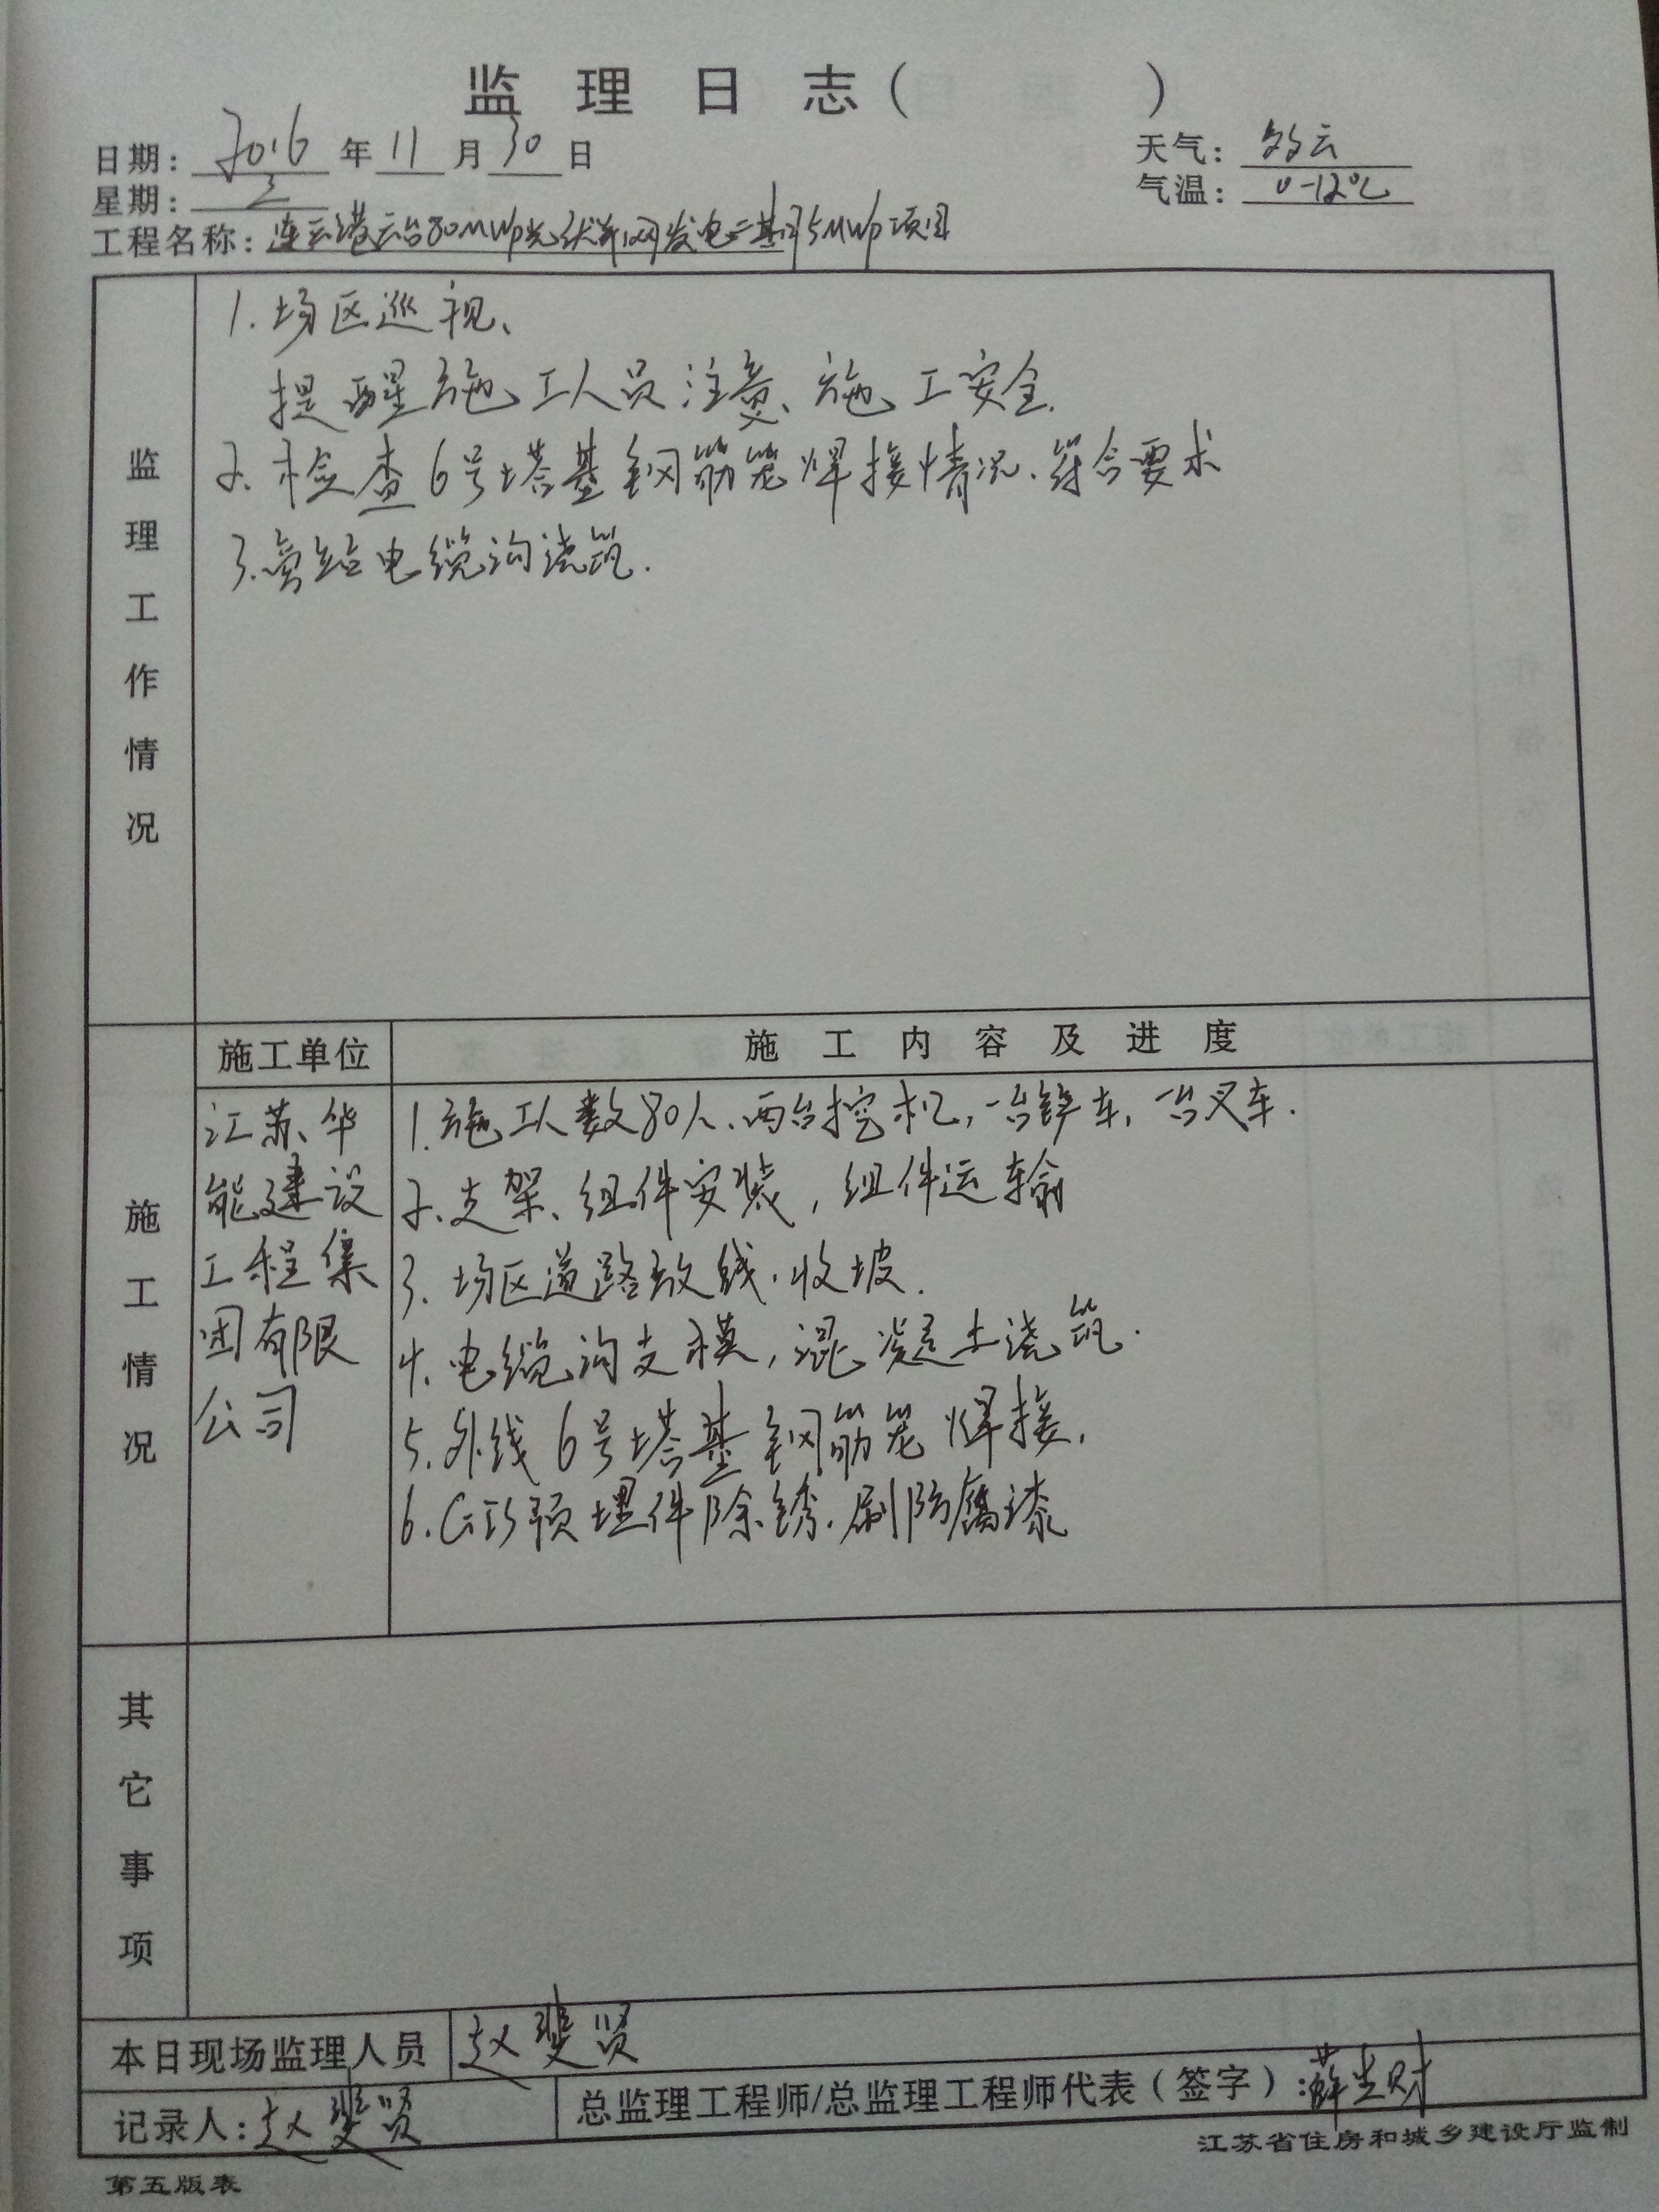 监理日志（ ）
日期：2016年11月30日
天气：多云
星期：三
气温：0-12℃
工程名称：连云港云台80MWp光伏并网发电二期5MWp项目
监理工作情况
1.场区巡视、
提醒施工人员注意、施工安全.
2.检查6号塔基钢筋笼焊接情况.符合要求
3.旁站电缆沟浇筑.
施工情况
施工单位
施工内容及进度
江苏华
能建设
工程集
团有限
公司
1.施工人数80人、两台挖机,一台铲车,一台叉车.
2.支架、组件安装,组件运输
3.场区道路放线.收坡.
4.电缆沟支模,混凝土浇筑.
5.外线6号塔基钢筋笼焊接.
6.GIS预埋件除锈.刷防腐漆
其它事项
本日现场监理人员 赵斐贤
记录人：赵斐贤
总监理工程师/总监理工程师代表（签字）：薛
江苏省住房和城乡建设厅监制
第五版表